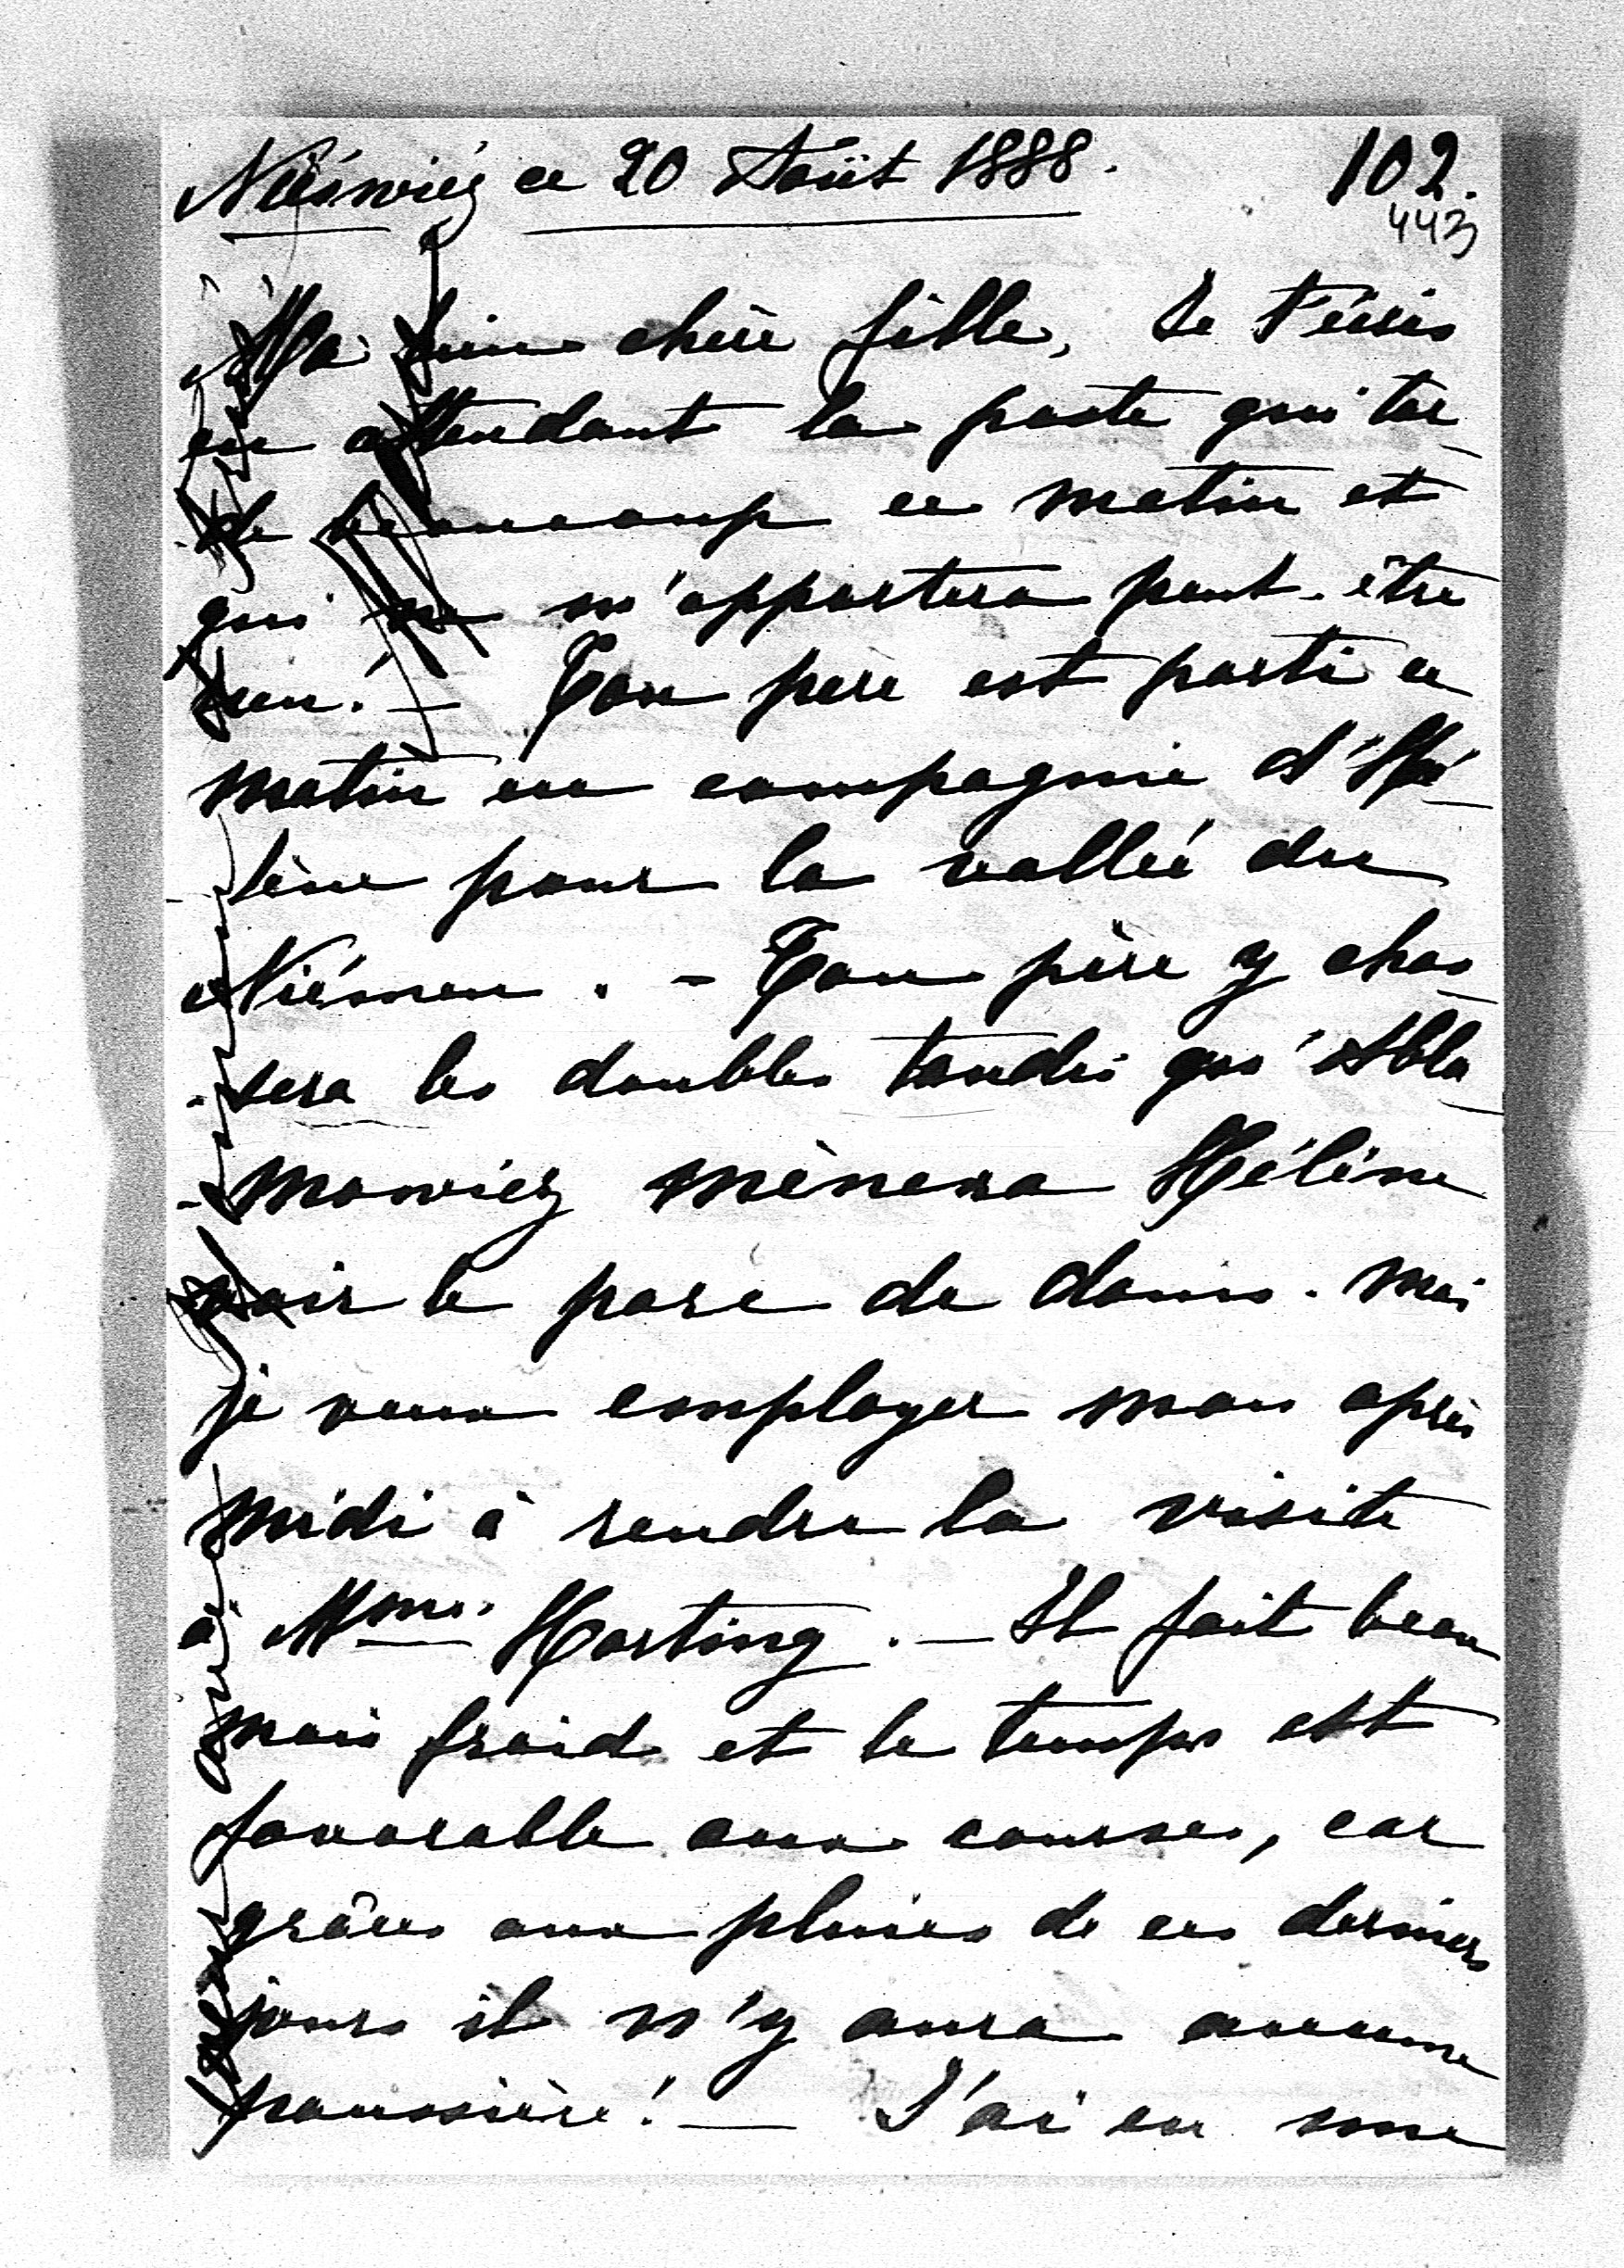 Nieświéz ce 20 Août 1888.
102.
443
Ma bien chère fille, Je t'écris
en attendant la poste qui tar-
-de beaucoup ce matin et
qui ne m'apportera peut-être
rien! — Ton père est parti ce
matin en compagnie d'Hé-
-lène pour la vallée du
Niémen. - Ton père y chas-
-sera les doubles tandis qu'Abla-
-mowicz mènera Hélène
voir le parc de daims. Moi
je veux employer mon après
midi à rendre la visite
à Mme. Harting. — Il fait beau
mais froid et le temps est
favorable aux courses, car
grâces aux pluies de ces derniers
jours il n'y aura aucune
poussière! — J'ai eu une